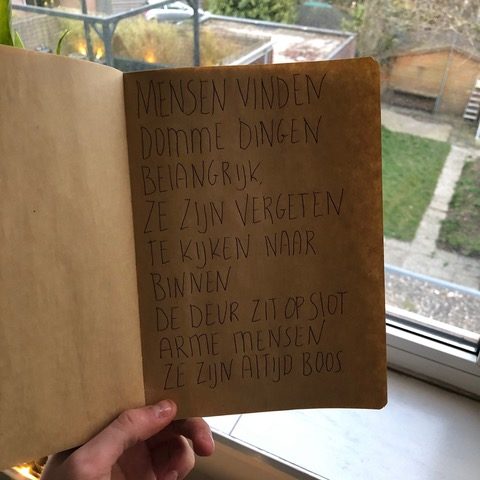 MENSEN VINDEN
DOMME DINGEN
BELANGRIJK,
ZE ZIJN VERGETEN
TE KIJKEN NAAR
BINNEN
DE DEUR ZIT OP SLOT
ARME MENSEN
ZE ZIJN ALTIJD BOOS